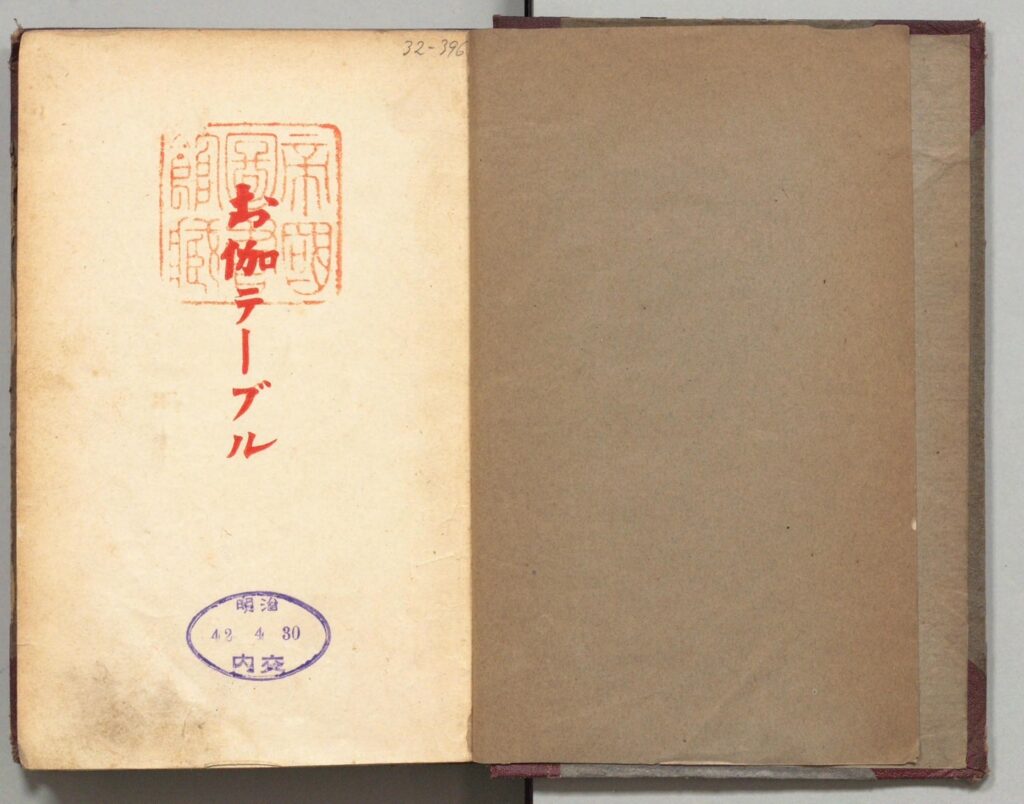 32-396
帝國
圖書
館藏
お伽テーブル
明治
42 4 30
内交